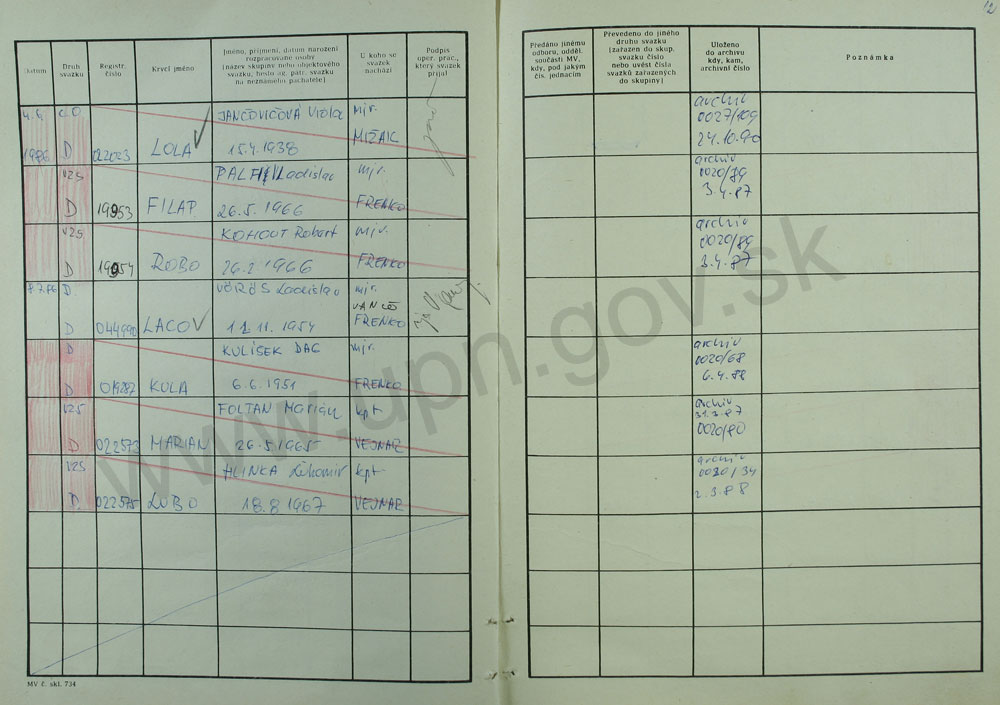 12
datum
Druh svazku
Registr. číslo
Krycí jméno
Jméno, příjmení, datum narození
rozpracované osoby
(název skupiny nebo objektového
svazku, heslo ag. pátr. svazku
na neznámého pachatele)
U koho se
svazek
nachází
Podpis
oper. prac.,
který svazek
přijal
Předáno jinému
odboru, odděl.
součásti MV,
kdy, pod jakým
čís. jednacím
Převedeno do jiného
druhu svazku
(zařazen do skup.
svazku číslo
nebo uvést čísla
svazků zařazených
do skupiny)
Uloženo
do archivu
kdy, kam,
archivní číslo
Poznámka
JANČOVIČOVÁ Viola mjr. archiv
0027/109
1986 D 022023 LOLA 15.4.1938 MIŽAIC 24.10.90
VZS PALFI Ladislav mjr. archiv
0020/89
D 19953 FILAP 26.5.1966 FRENKO 3.4.87
VZS KOHOUT Robert mjr. archiv
0020/89
D 19954 ROBO 26.2.1966 FRENKO 3.4.87
8.7.86 D VÖRÖS Ladislav mjr.
D 044990 LACO 11.11.1954 FRENKO
D KULÍSEK DAG mjr. archiv
0020/68
D 019287 KULA 6.6.1951 FRENKO 6.4.88
VZS FOLTAN Marián kpt archiv
31.3.87
D 022573 MARIAN 26.5.1965 VEJNAR 0020/80
VZS HLINKA Ľubomír kpt archiv
D 022575 LUBO 18.8.1967 VEJNAR 2.3.88
MV č. skl. 734
www.upn.gov.sk